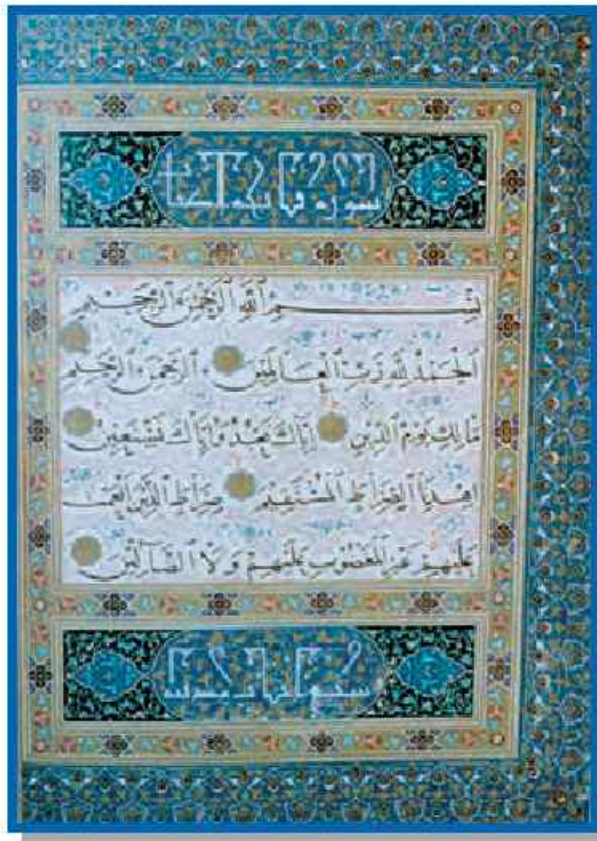 سورة فاتحة الكتاب
بِسْمِ اللَّهِ الرَّحْمَٰنِ الرَّحِيمِ
الْحَمْدُ لِلَّهِ رَبِّ الْعَالَمِينَ الرَّحْمَٰنِ الرَّحِيمِ
مَالِكِ يَوْمِ الدِّينِ إِيَّاكَ نَعْبُدُ وَإِيَّاكَ نَسْتَعِينُ
اهْدِنَا الصِّرَاطَ الْمُسْتَقِيمَ صِرَاطَ الَّذِينَ أَنْعَمْتَ
عَلَيْهِمْ غَيْرِ الْمَغْضُوبِ عَلَيْهِمْ وَلَا الضَّالِّينَ
سبع آيات